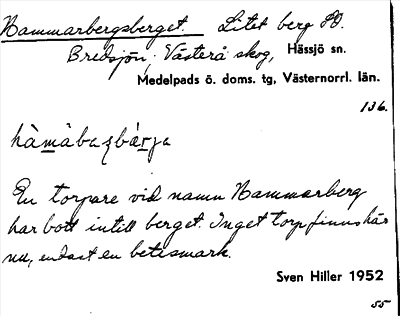 Hammarbergsberget. Litet berg SO.
Bredsjön, Västerå skog, Hässjö sn.
Medelpads ö. doms. tg, Västernorrl. län.
136.
hàmabazbærja
En torpare vid namn Hammarberg
har bott intill berget. Inget torp finns här
nu, endast en betesmark.
Sven Hiller 1952
55